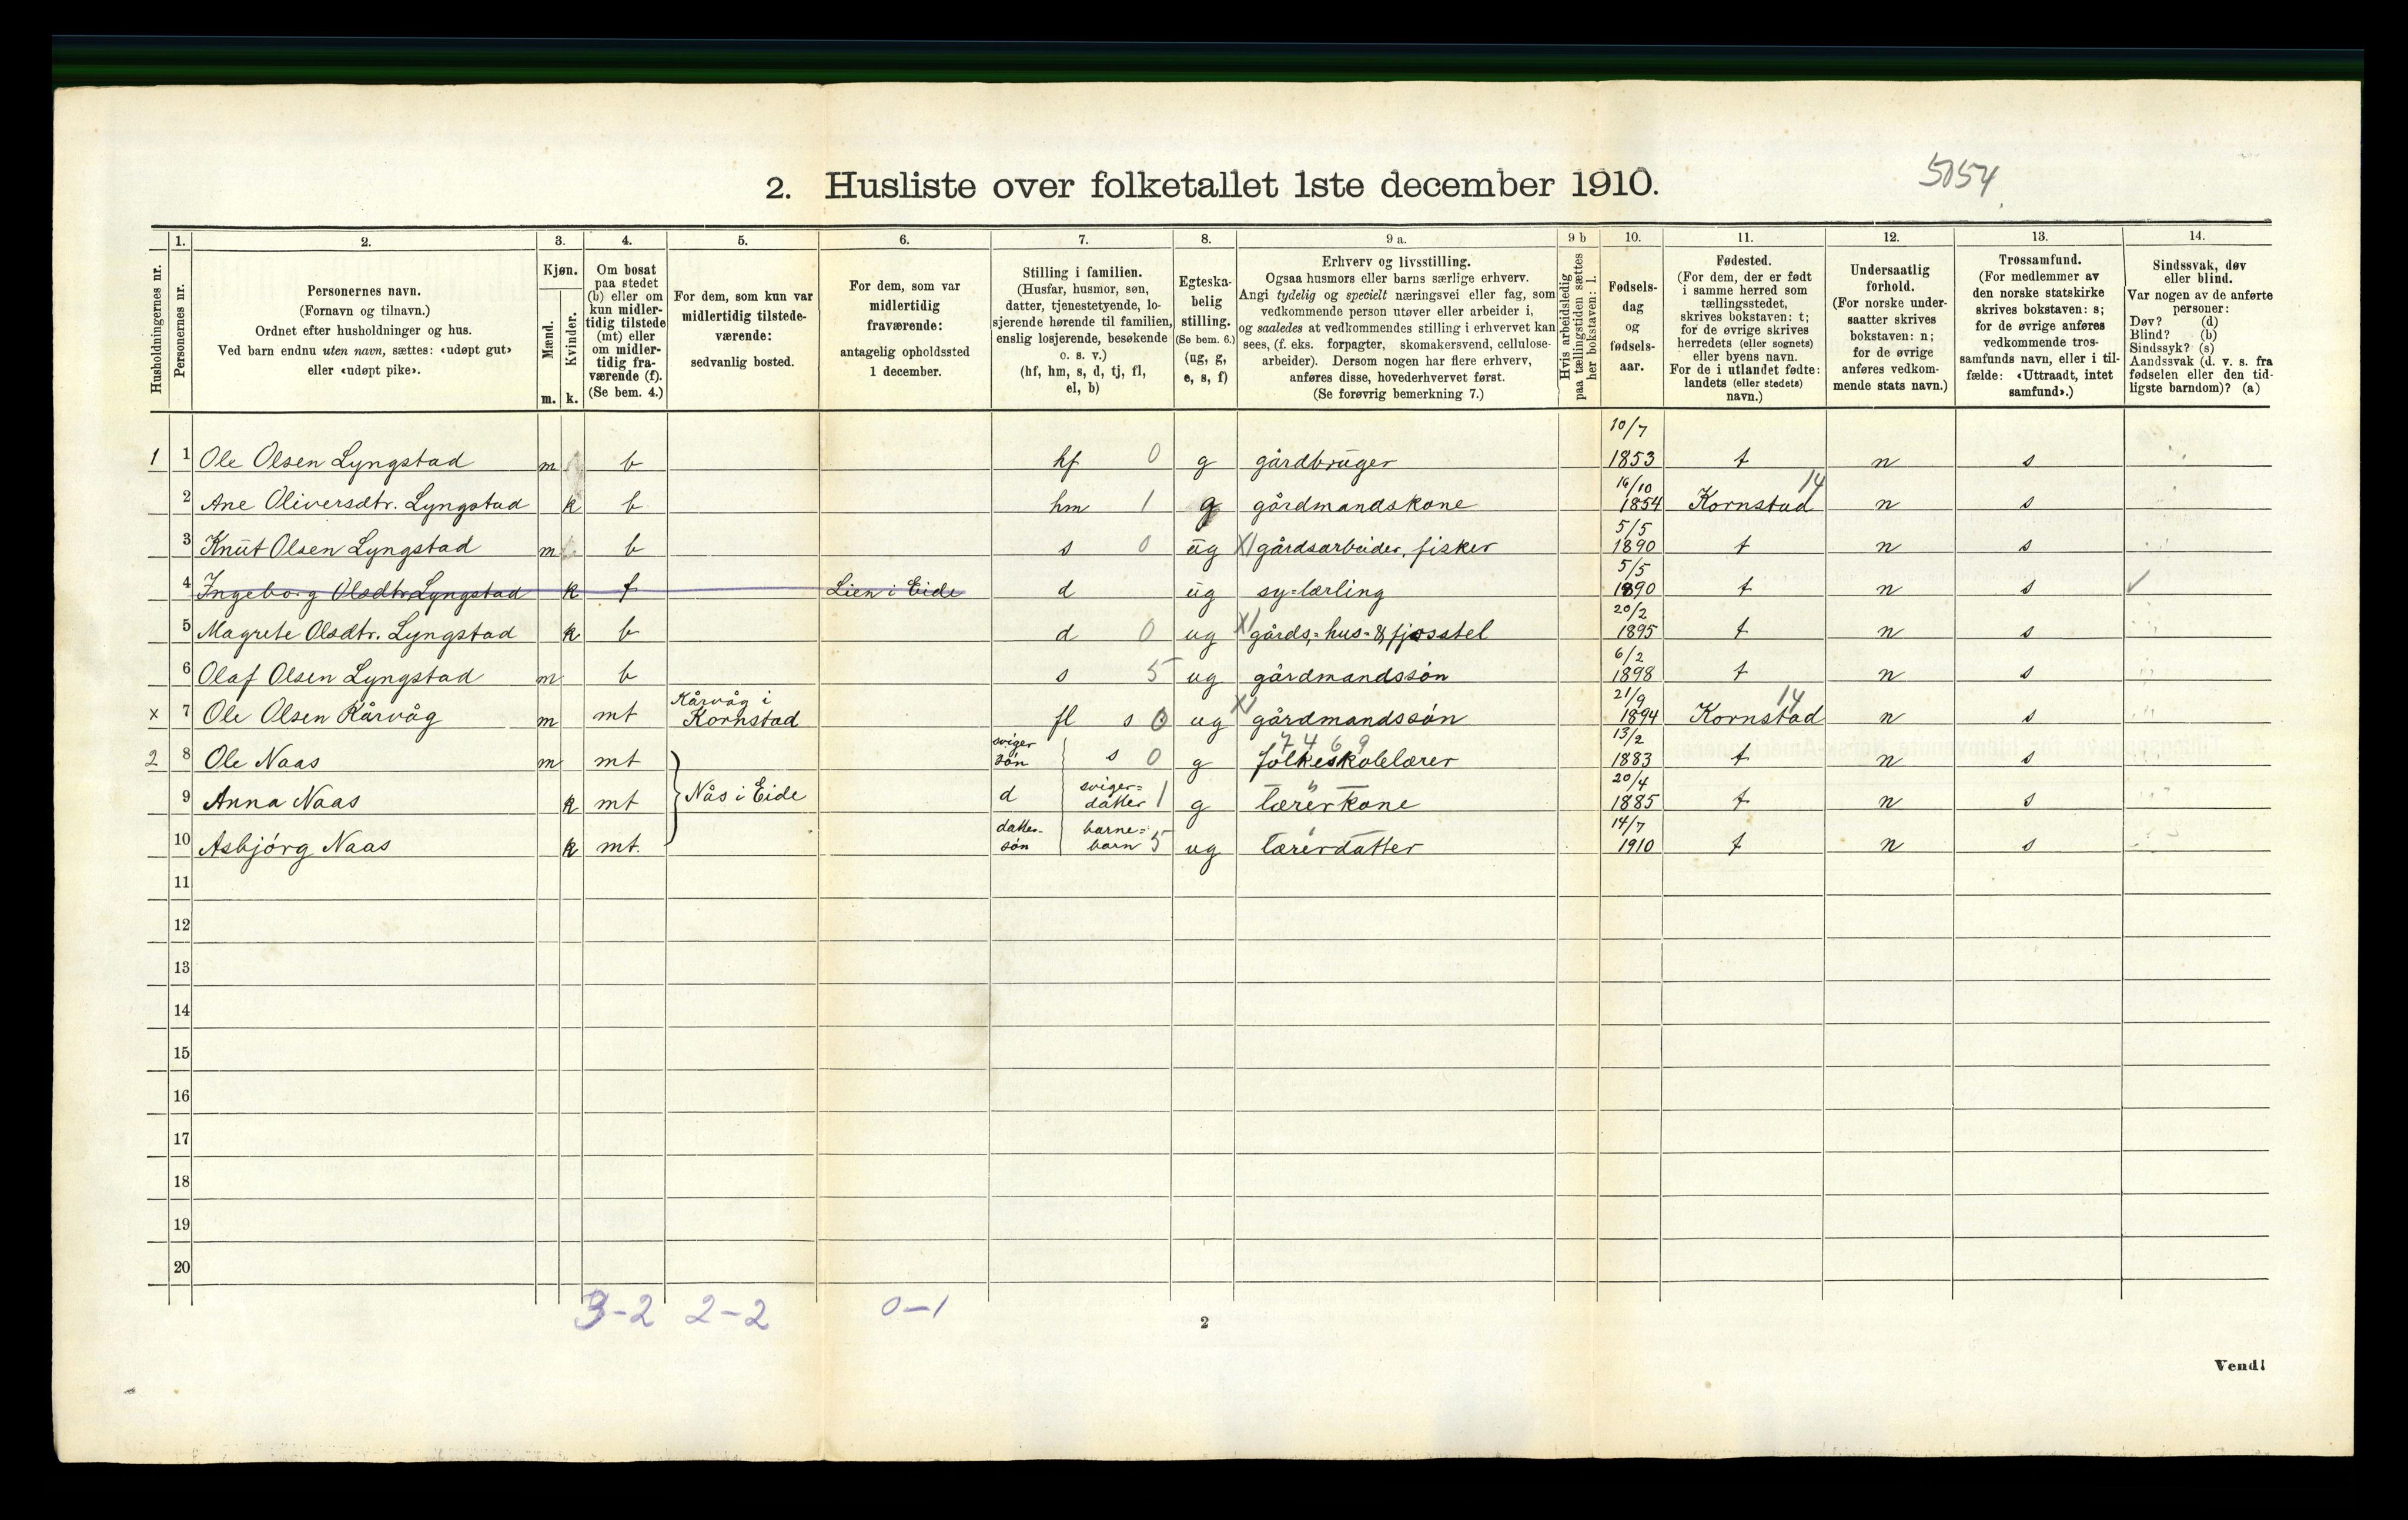 5054
2. Husliste over folketallet 1ste december 1910.
Husholdningernes nr.
1.
Personernes nr.
2.
Personernes navn.
(Fornavn og tilnavn.)
Ordnet efter husholdninger og hus.
Ved barn endnu uten navn, sættes: «udøpt gut»
eller «udøpt pike».
3.
Kjøn.
Mænd.
Kvinder.
m. k.
4.
Om bosat
paa stedet
(b) eller om
kun midler-
tidig tilstede
(mt) eller
om midler-
tidig fra-
værende (f).
(Se bem. 4.)
5.
For dem, som kun var
midlertidig tilstede-
værende:
sedvanlig bosted.
6.
For dem, som var
midlertidig
fraværende:
antagelig opholdssted
1 december.
7.
Stilling i familien.
(Husfar, husmor, søn,
datter, tjenestetyende, lo-
sjerende hørende til familien,
enslig losjerende, besøkende
o. s. v.)
(hf, hm, s, d, tj, fl,
el, b)
8.
Egteska-
belig
stilling.
(Se bem. 6.)
(ug, g,
e, s, f)
9 a.
Erhverv og livsstilling.
Ogsaa husmors eller barns særlige erhverv.
Angi tydelig og specielt næringsvei eller fag, som
vedkommende person utøver eller arbeider i,
og saaledes at vedkommendes stilling i erhvervet kan
sees, (f. eks. forpagter, skomakersvend, cellulose-
arbeider). Dersom nogen har flere erhverv,
anføres disse, hovederhvervet først.
(Se forøvrig bemerkning 7.)
9 b
Hvis arbeidsledig
paa tællingstiden sættes
her bokstaven: l.
10.
Fødsels-
dag
og
fødsels-
aar.
11.
Fødested.
(For dem, der er født
i samme herred som
tællingsstedet,
skrives bokstaven: t;
for de øvrige skrives
herredets (eller sognets)
eller byens navn.
For de i utlandet fødte:
landets (eller stedets)
navn.)
12.
Undersaatlig
forhold.
(For norske under-
saatter skrives
bokstaven: n;
for de øvrige
anføres vedkom-
mende stats navn.)
13.
Trossamfund.
(For medlemmer av
den norske statskirke
skrives bokstaven: s;
for de øvrige anføres
vedkommende tros-
samfunds navn, eller i til-
fælde: «Uttraadt, intet
samfund».)
14.
Sindssvak, døv
eller blind.
Var nogen av de anførte
personer:
Døv? (d)
Blind? (b)
Sindssyk? (s)
Aandssvak (d. v. s. fra
fødselen eller den tid-
ligste barndom)? (a)
1 1 Ole Olsen Lyngstad m b hf 0 g gårdbruger 10/7 1853 t n s
2 Ane Oliversdtr. Lyngstad k b hm 1 g gårdmandskone 16/10 1854 Kornstad 14 n s
3 Knut Olsen Lyngstad m b s 0 ug X1 gårdsarbeider, fisker 5/5 1890 t n s
4 Ingeborg Olsdtr Lyngstad k f Lien i Eide d ug sy-lærling 5/5 1890 t n s ✓
5 Magrete Olsdtr. Lyngstad k b d 0 ug X1 gårds- hus- & fjosstel 20/2 1895 t n s
6 Olaf Olsen Lyngstad m b s 5 ug gårdmandssøn 6/2 1898 t n s
x 7 Ole Olsen Kårvåg m mt Kårvåg i Kornstad fl s 0 ug X1 gårdmandssøn 21/9 1894 Kornstad 14 n s
2 8 Ole Naas m mt svigersøn s 0 g 7469 folkeskolelærer 13/2 1883 t n s
9 Anna Naas k mt Nås i Eide d sviger=datter 1 g lærerkone 20/4 1885 t n s
10 Asbjørg Naas k mt. datter-søn barne=barn 5 ug lærerdatter 14/7 1910 t n s
11
12
13
14
15
16
17
18
19
20
3-2 2-2 0-1
2
Vend!